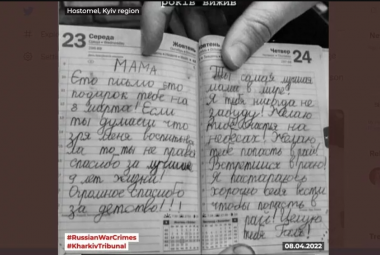 Hostomel, Kyiv region
років вижив
23 Середа
Жовтень
Жовтень
Четвер 24
МАМА
Ето письмо ето
подарок тебе на
8 марта! Если
ты думаеш что
зря меня воспитывала
то ты не права
спасибо за лучшие
9 лет жизни!
Огромное спасибо
за детство!!!
Ты самая лучшая
мама в мире!
Я тебя никогда не
забуду! Желаю
счастья на
небесах! Желаю
тебе попасть в рай!
Встретимся в раю!
Я постараюсь
хорошо себя вести
чтобы попасть в
рай! Целую
тебя
#RussianWarCrimes
#KharkivTribunal
08.04.2022